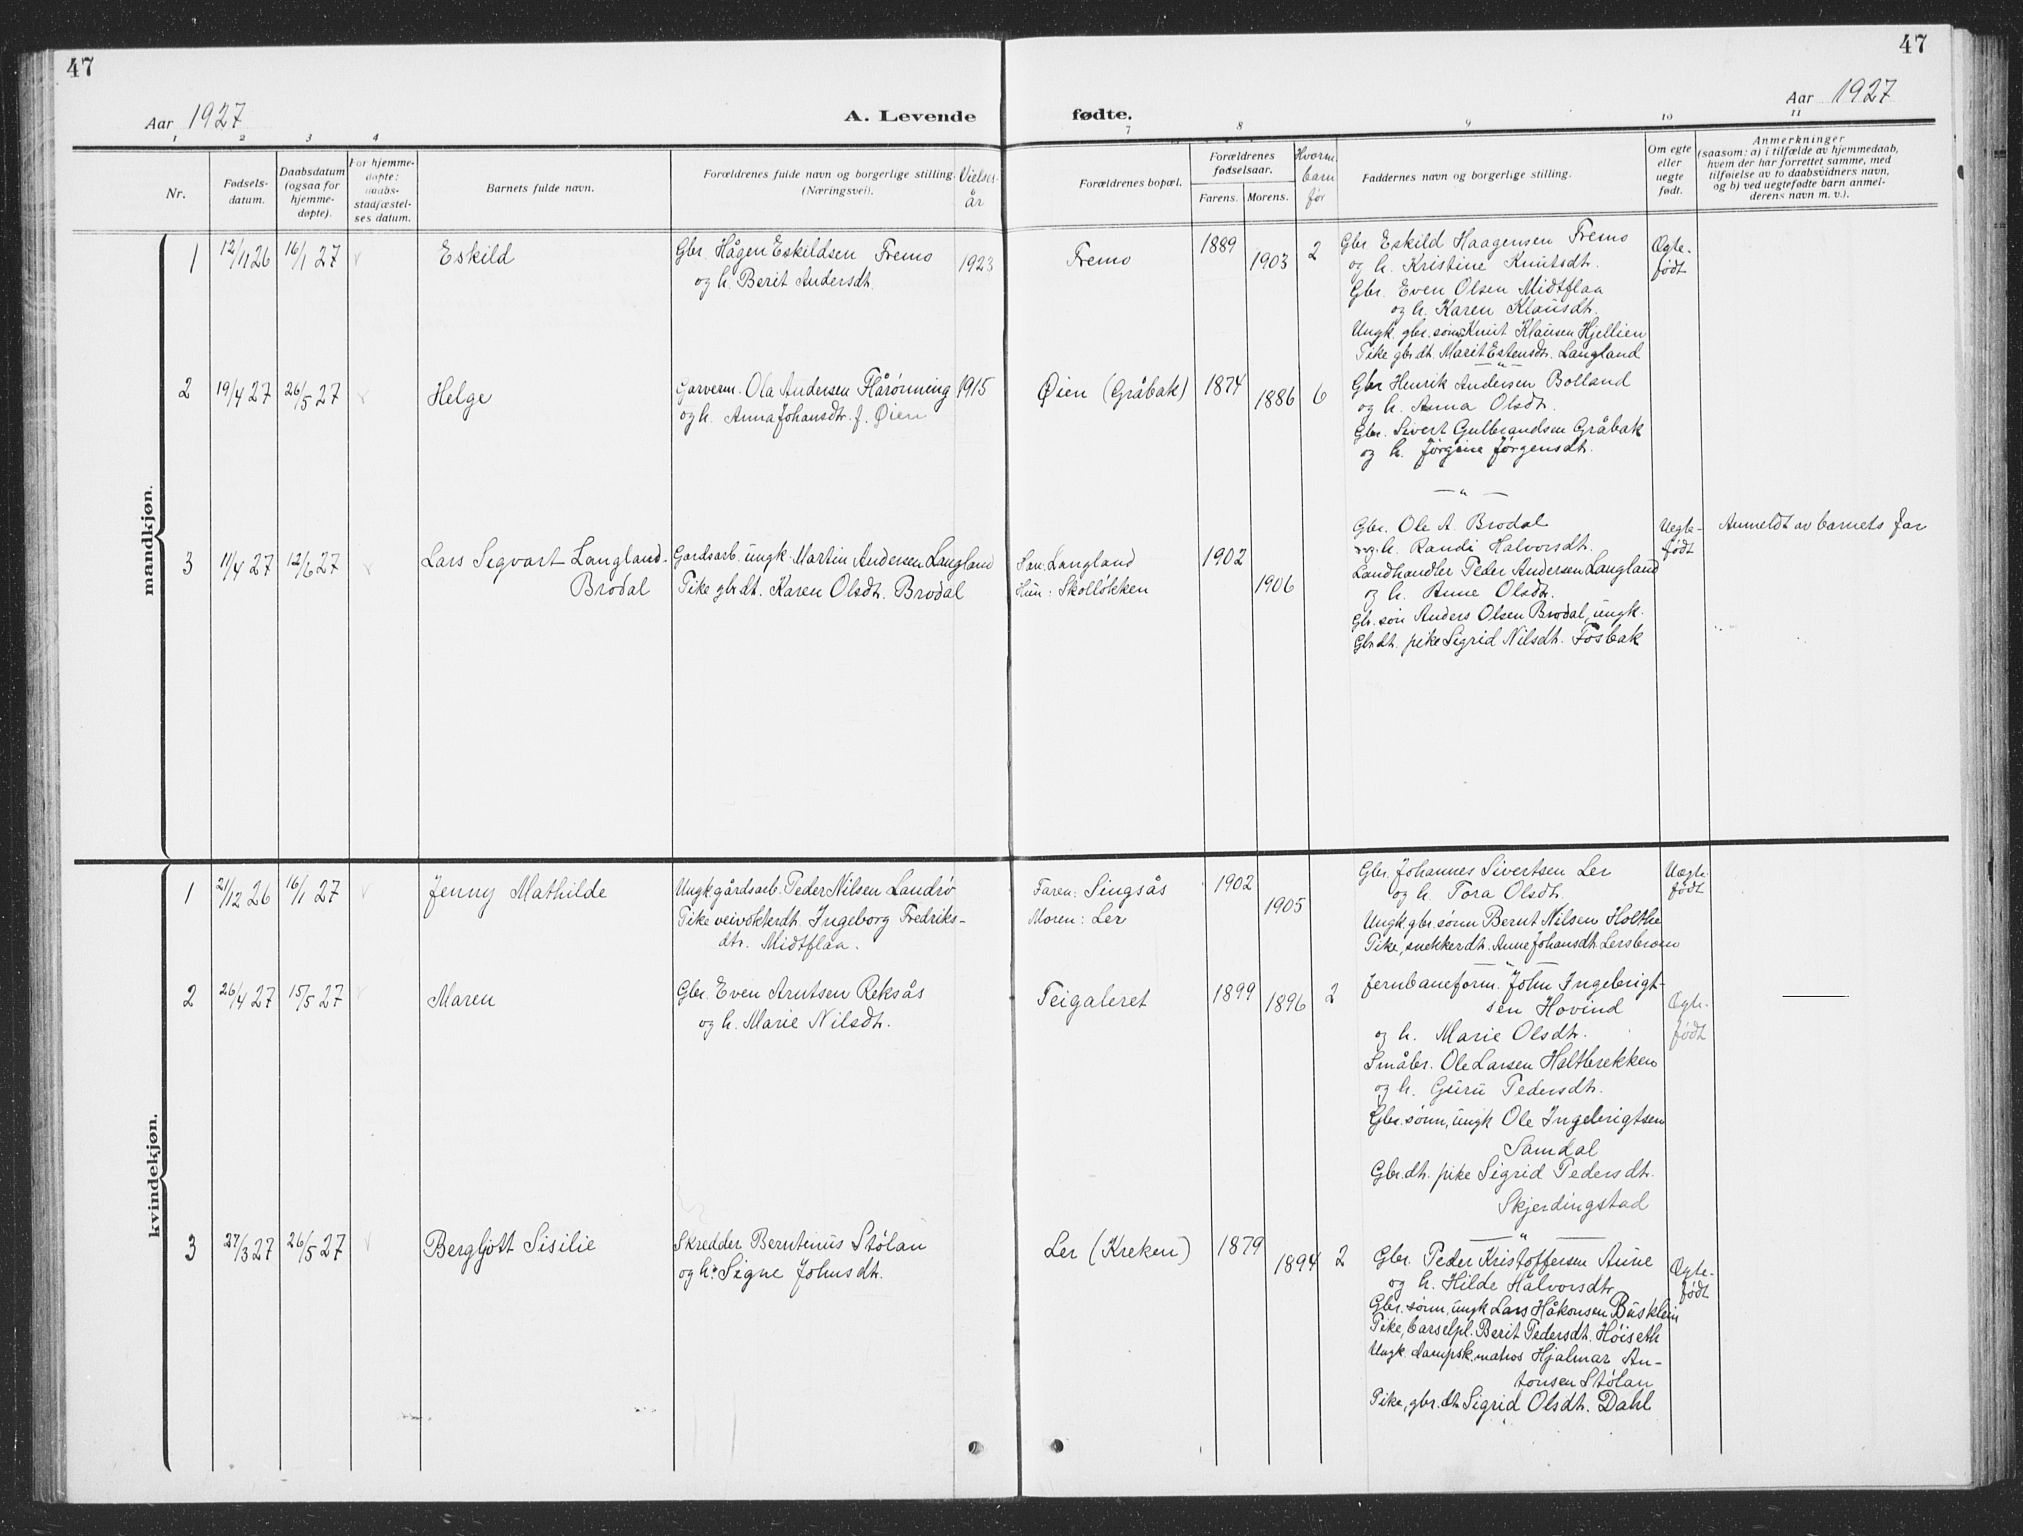 47
47
Aar 1927
A. Levende fødte.
Aar 1927
1 2 3 4 7 8 9 10 11
Nr.
Fødsels-
datum.
Daabsdatum
(ogsaa for
hjemme-
døpte).
For hjemme-
døpte:
daabs-
stadfæstel-
ses datum.
Barnets fulde navn.
Forældrenes fulde navn og borgerlige stilling.
(Næringsvei).
Vielses
år
Forældrenes bopæl.
Forældrenes
fødselsaar.
Farens. Morens.
Hvorm.
barn
før
Faddernes navn og borgerlige stilling.
Om egte
eller
uegte
født.
Anmerkninger
(saasom: a) i tilfælde av hjemmedaab,
hvem der har forrettet samme, med
tilføielse av to daabsvidners navn,
og b) ved uegtefødte barn anmel-
derens navn m. v.).
mandkjøn.
1 12/11 26 16/1 27 Eskild
Gbr. Hågen Eskildsen Fremo
og h. Berit Andersdt.
1923
Fremo
1889 1903 2
Gbr Eskild Haagensen Fremo
og h. Kristine Knutsdt.
Gbr. Even Olsen Midtflaa
og h. Karen Klausdt.
Ungk. gbr. sønn Knut Klausen Hjellien
Pike gbr.dt. Marit Estensdt. Langland
Ogte-
født
2 19/4 27 26/5 27 Helge
Garverm. Ola Andersen Flårønning
og h. Anna Johansdt. f. Øien
1915
Øien (Gråbak)
1874 1886 6
— " —
Gbr Henrik Andersen Bolland
og h. Anna Olsdt.
Gbr. Sivert Gulbrandsen Gråbak
og h. Jørgine Jørgensdt.
— " —
3 11/4 27 12/6 27 Lars Segvart Langland-
Brodal
Gardsarb. ungk. Martin Andersen Langland
Pike gbr.dt. Karen Olsdt. Brodal
Han: Langland
Hun: Skolløkken
1902 1906
Gbr. Ole A. Brodal
og h. Randi Halvorsdt.
Landhandler Peder Andersen Langland
og h. Anne Olsdt.
Gbr. søn Anders Olsen Brodal, ungk.
Gbr.dt. pike Sigrid Nilsdt. Fosbak
Uegte-
født
Anmeldt av barnets far
kvindekjøn.
1 21/12 26 16/1 27 Jenny Mathilde
Ungk gårdsarb. Peder Nilsen Landrø
Pike veivokterdt. Ingeborg Fredriks-
dtr. Midtflaa.
Faren: Singsås
Moren: Ler
1902 1905
Gbr. Johannes Sivertsen Ler
og h. Tora Olsdt.
Ungk. gbr. sønn Bernt Nilsen Holthe
Pike, snekkerdt. Anne Johansdt. Lersbroen
— " —
Uegte
født
2 26/4 27 15/5 27 Maren
Gbr. Even Arntsen Reksås
og h. Marie Nilsdt.
Teigaleret
1899 1896 2
Jernbaneform. John Ingebrigt-
sen Hovind
og h. Marie Olsdt.
Småbr. Ole Larsen Haltbrekken
og h. Guru Pedersdt.
Gbr. sønn, ungk Ole Ingebrigtsen
Samdal
Gbr.dt. pike Sigrid Pedersdt.
Skjerdingstad
— " —
Ogte-
født
3 27/3 27 26/5 27 Bergljott Sisilie
Skredder Berntinus Stølan
og h. Signe Johnsdt.
Ler (Kreken)
1879 1894 2
Gbr. Peder Kristoffersen Aune
og h. Hilde Halvorsdt.
Gbr. sønn, ungk Lars Håkonsen Busklein
Pike, barselpl. Berit Pedersdt. Høiseth
Ungk. dampsk. matros Hjalmar An-
tonsen Stølan
Pike, gbr. dt Sigrid Olsdt. Dahl
Ogte-
født